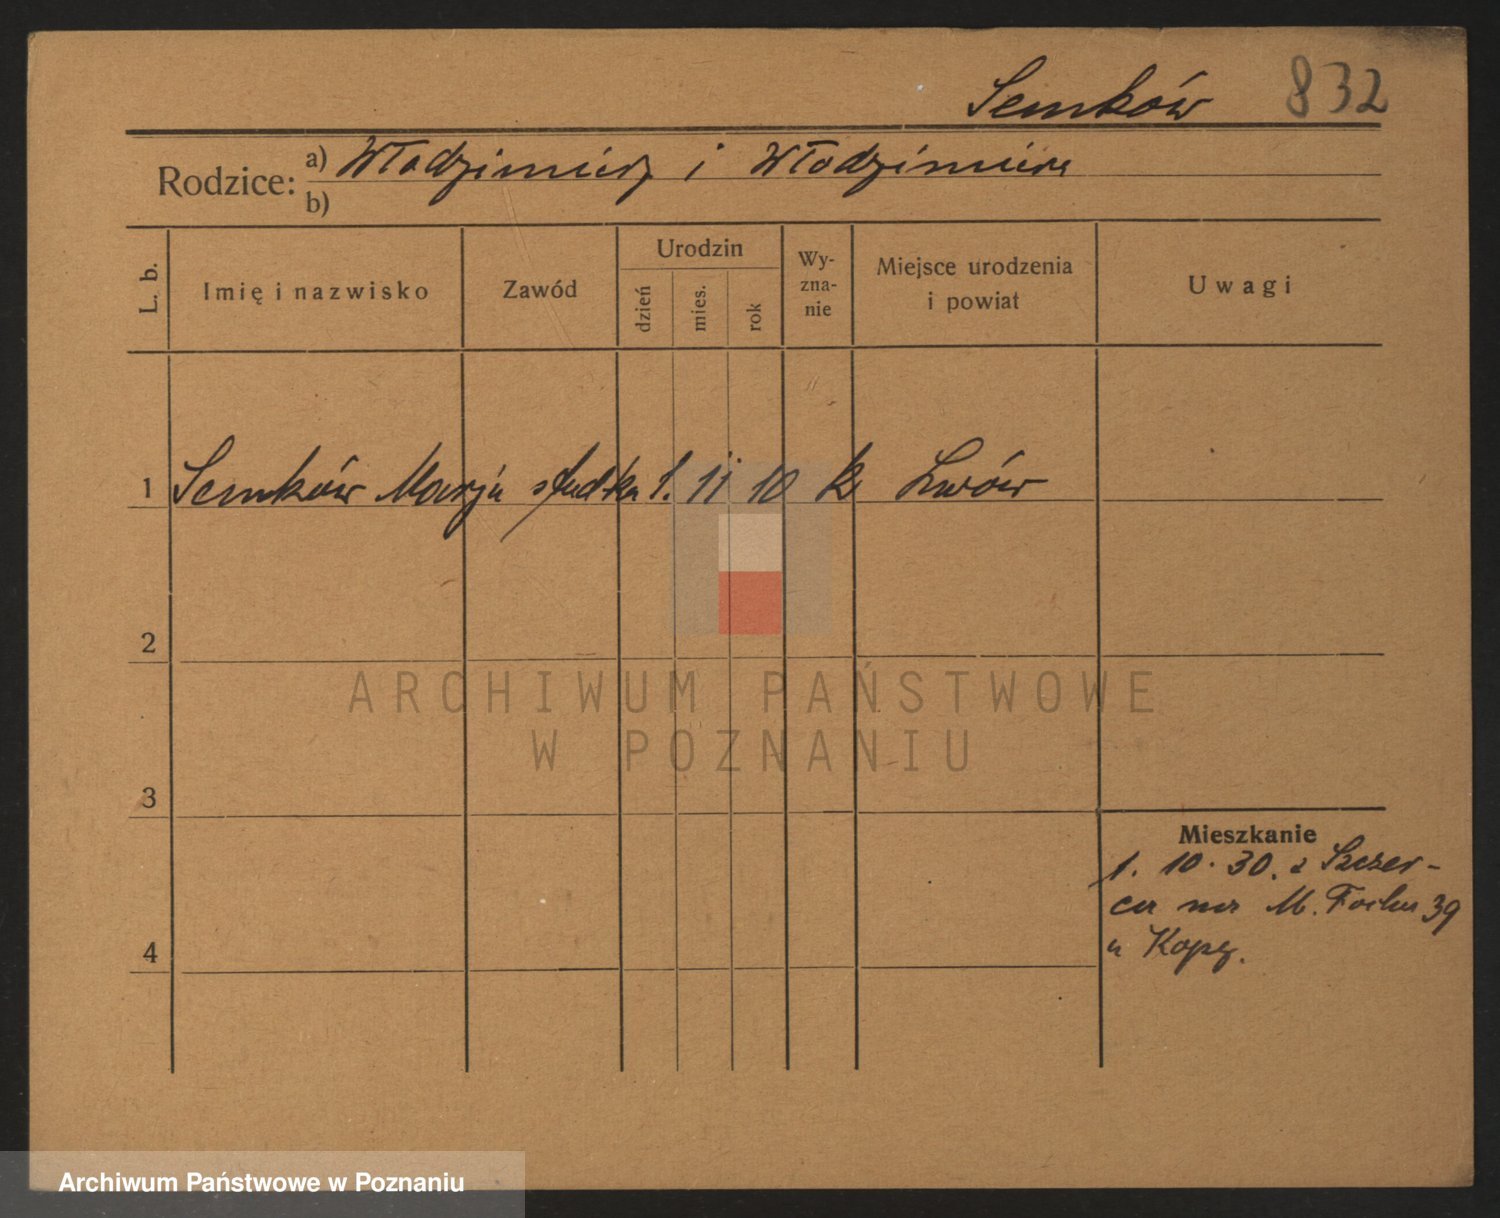 Semków 832
Rodzice: a) Włodzimierz i Włodzimiera
b)
L. b.
Imię i nazwisko
Zawód
Urodzin
dzień
mies.
rok
Wy-
zna-
nie
Miejsce urodzenia
i powiat
Uwagi
1 Semków Marja studtka 1. 11 10 k Lwów
2
3
4
Mieszkanie
1. 10. 30. z Szczer-
ca na M. Focha 39
u
ARCHIWUM PAŃSTWOWE
W POZNANIU
Archiwum Państwowe w Poznaniu